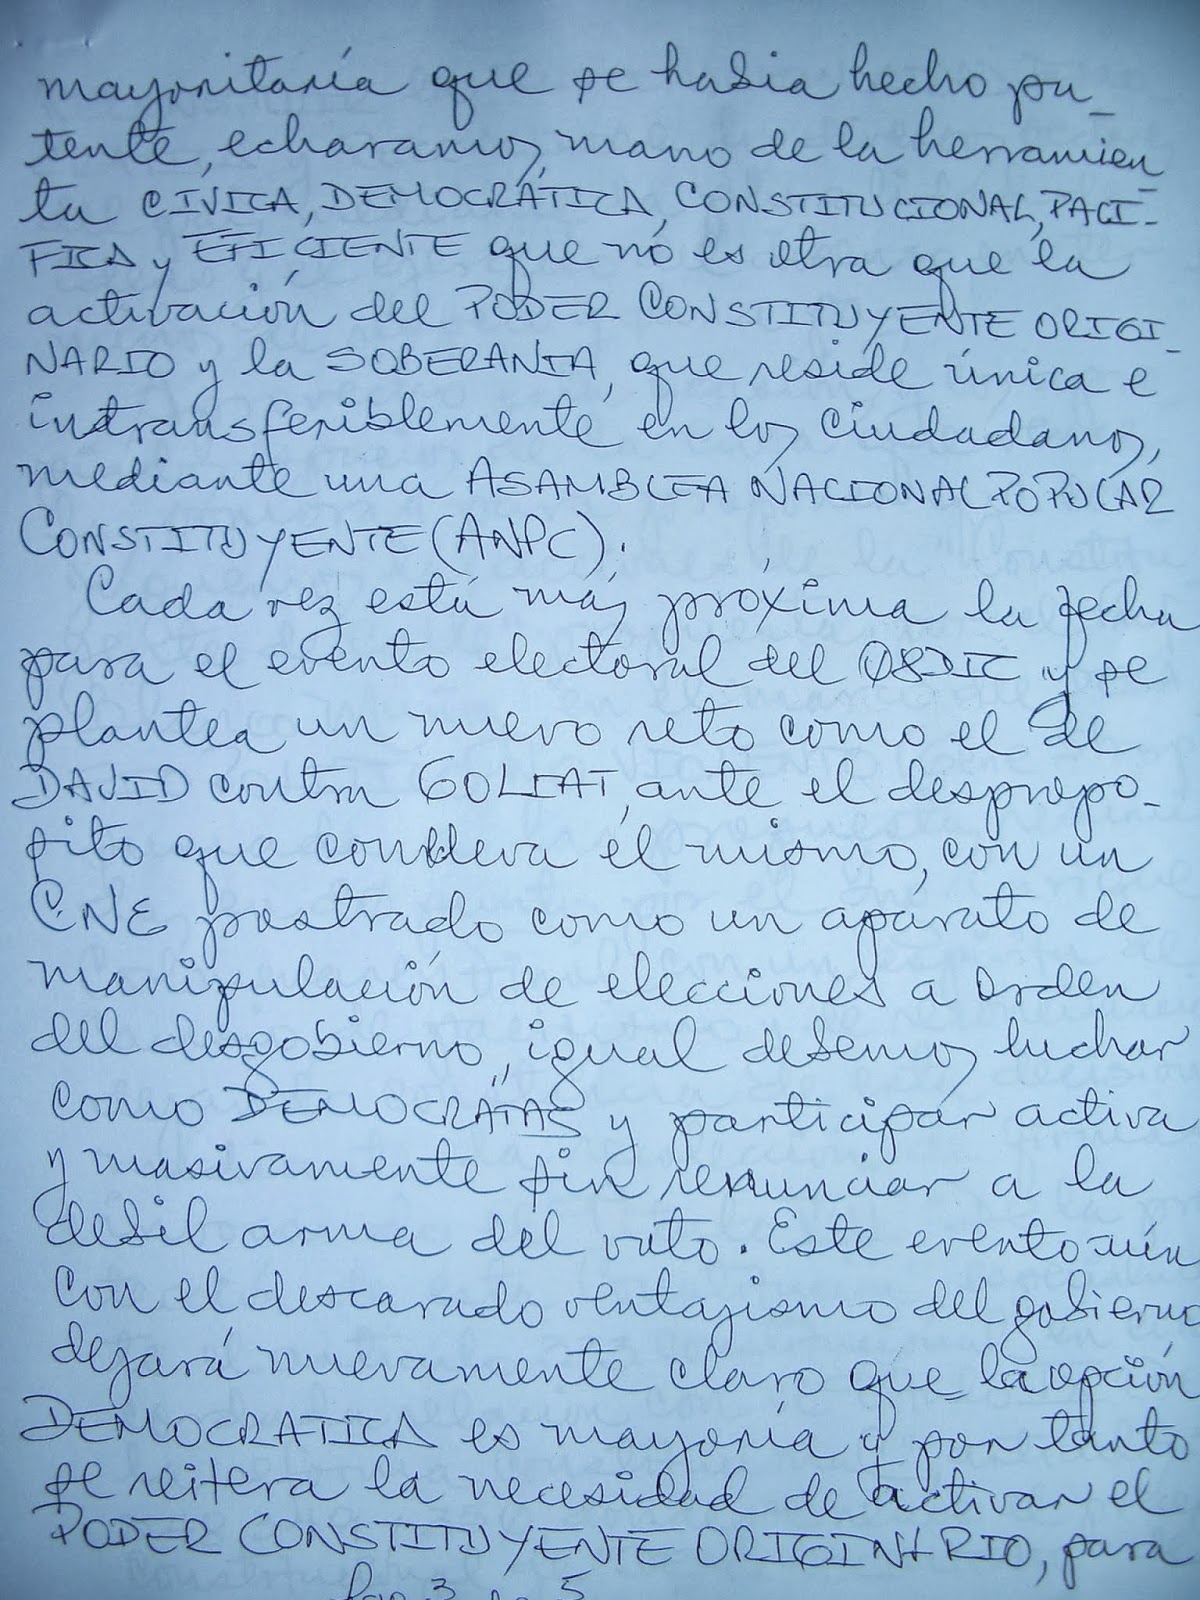 mayoritaría que se habia hecho pa-
tente, echaramos mano de la herramien-
ta CÍVICA, DEMOCRÁTICA, CONSTITUCIONAL, PACI-
FICA y EFICIENTE que no es otra que la
activación del PODER CONSTITUYENTE ORIGI-
NARIO y la SOBERANIA, que reside única e
intransferiblemente en los ciudadanos,
mediante una ASAMBLEA NACIONAL POPULAR
CONSTITUYENTE (ANPC).
Cada vez está más próxima la fecha
para el evento electoral del 08DIC y se
plantea un nuevo reto como el de
DAVID contra GOLIAT, ante el despropo-
sito que conlleva el mismo, con un
CNE postrado como un aparato de
manipulación de elecciones a orden
del desgobierno, igual debemos luchar
como DEMOCRATAS y participar activa
y masivamente sin renunciar a la
debil arma del voto. Este evento aún
con el descarado ventajismo del gobierno
dejará nuevamente claro que la opción
DEMOCRATICA es mayoría y por tanto
se reitera la necesidad de activar el
PODER CONSTITUYENTE ORIGINARIO, para
Pag 3 de 5